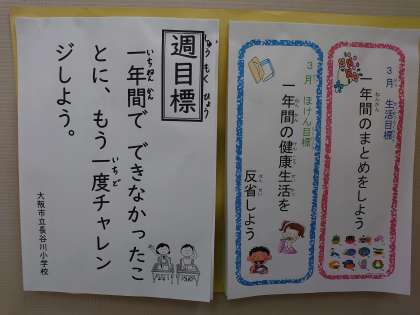 週目標
しゅうもくひょう
一年間で できなかったこ
いちねんかん
とに、もう一度チャレン
いちど
ジしよう。
大阪市立長谷川小学校
3月 生活目標
一年間のまとめをしよう
ねんかん
3月 ほけん目標
一年間の健康生活を
反省しよう